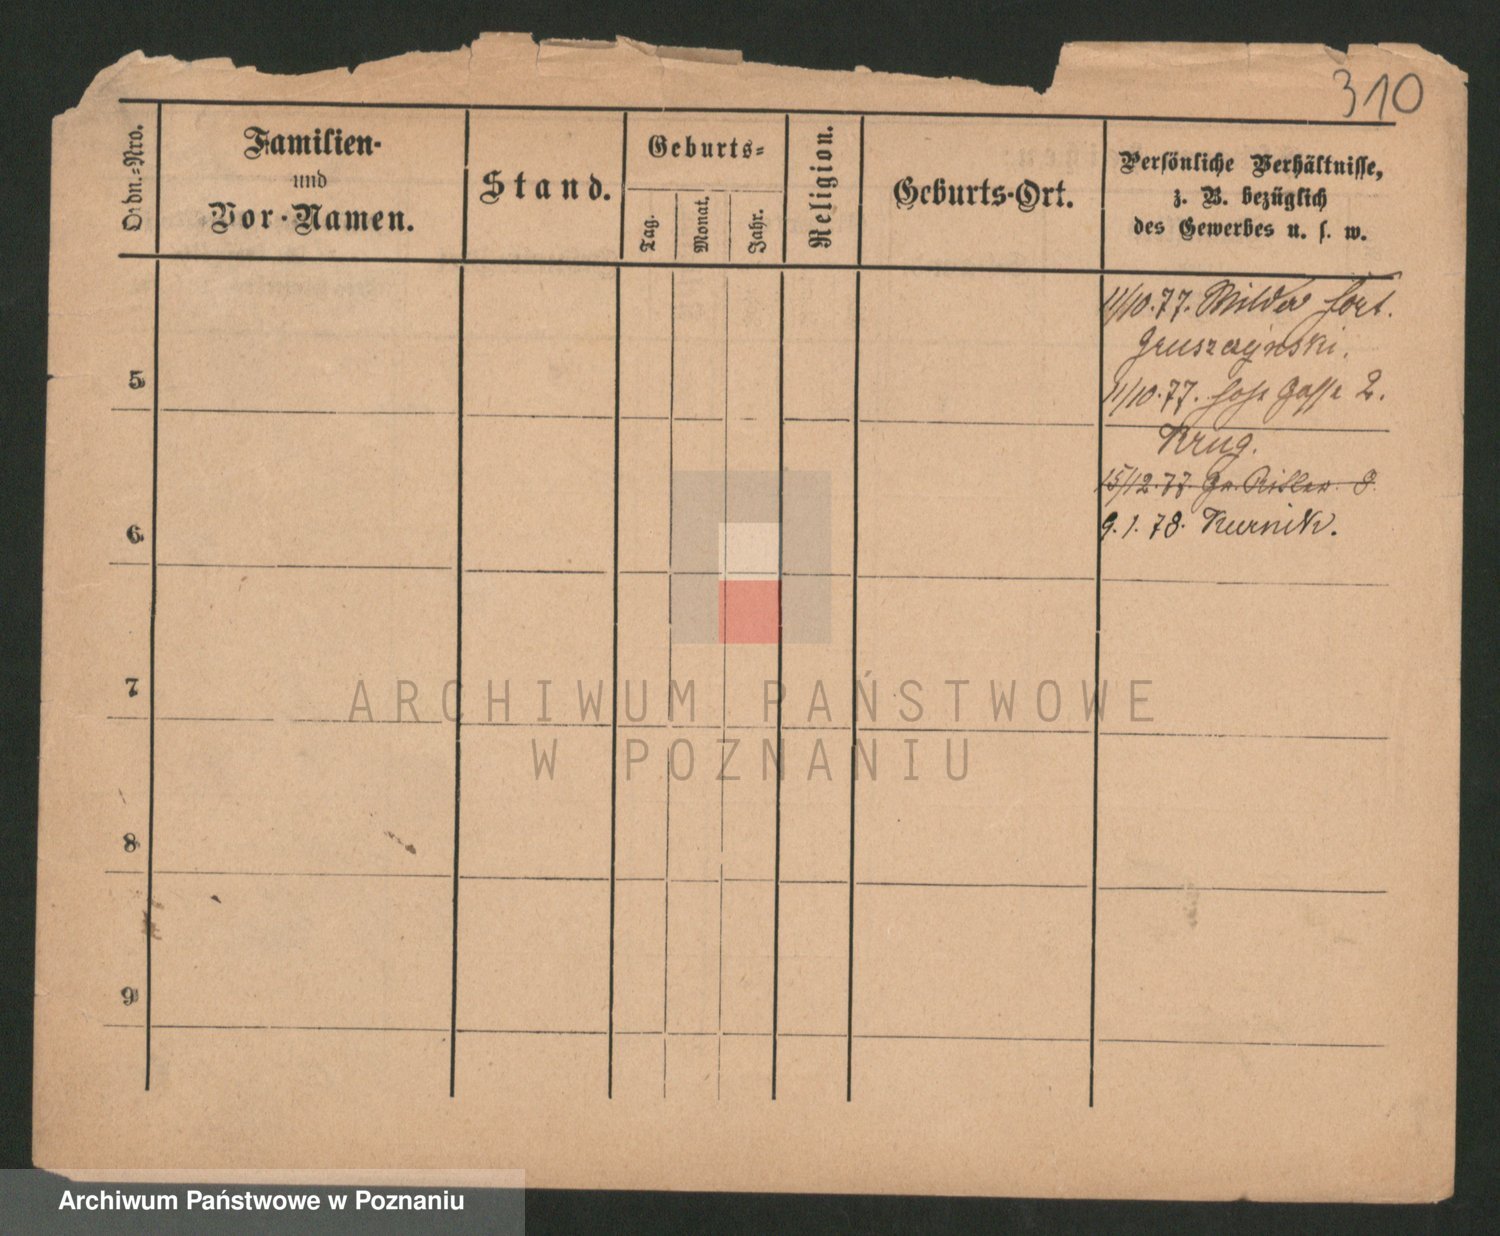 310
Ordn.-Nro.
Familien-
und
Vor-Namen.
Stand.
Geburts-
Tag.
Monat.
Jahr.
Religion.
Geburts-Ort.
Persönliche Verhältnisse,
z. B. bezüglich
des Gewerbes u. s. w.
11/10.77. Wilder fort.
Gruszczynski.
5
11/10.77. Gasse 2.
Krug.
15/12.77. Gr. Ritter. 8.
6
9.1.78. Kurnik.
7
ARCHIWUM PAŃSTWOWE
W POZNANIU
8
9
Archiwum Państwowe w Poznaniu